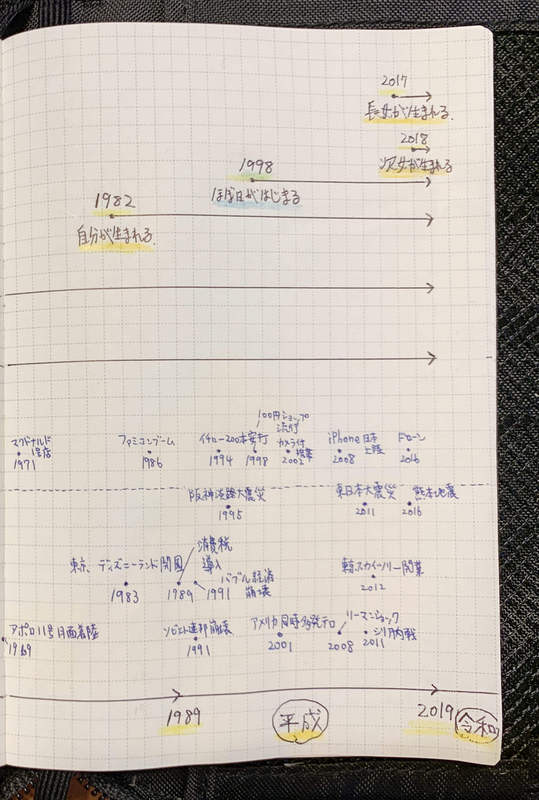 2017
長女が生まれる.
2018
次女が生まれる
1998
ほぼ日がはじまる
1982
自分が生まれる.
マクドナルド
1号店
1971
ファミコンブーム
1986
イチロー200本安打
1994
100円ショップ
流行
1998
カメラ付
携帯
2002
iPhone日本
上陸
2008
ドローン
2016
阪神淡路大震災
1995
東日本大震災
2011
熊本地震
2016
東京ディズニーランド開園
1983
消費税
導入
1989
バブル経済
崩壊
1991
東京スカイツリー開業
2012
アポロ11号月面着陸
1969
ソビエト連邦崩壊
1991
アメリカ同時多発テロ
2001
リーマンショック
2008
シリア内戦
2011
1989
平成
2019
令和